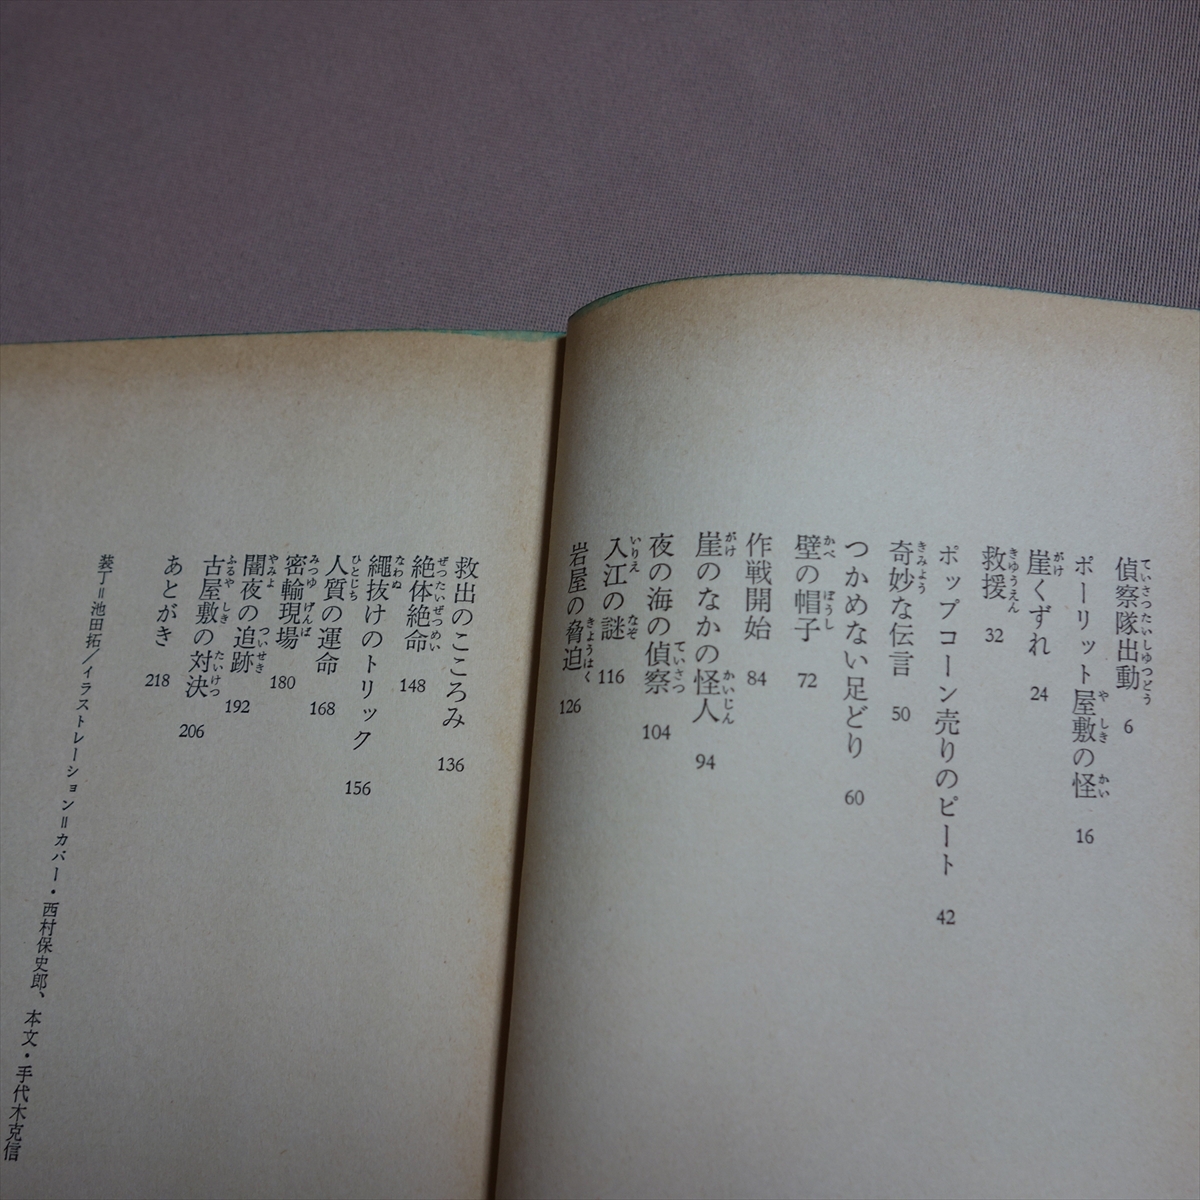 偵察隊出動 6
ポーリット屋敷の怪 16
崖くずれ 24
救援 32
ポップコーン売りのピート 42
奇妙な伝言 50
つかめない足どり 60
壁の帽子 72
作戦開始 84
崖のなかの怪人 94
夜の海の偵察 104
入江の謎 116
岩屋の脅迫 126
救出のこころみ 136
絶体絶命 148
縄抜けのトリック 156
人質の運命 168
密輸現場 180
闇夜の追跡 192
古屋敷の対決 206
あとがき 218
装丁=池田拓/イラストレーション=カバー・西村保史郎、本文・手代木克信